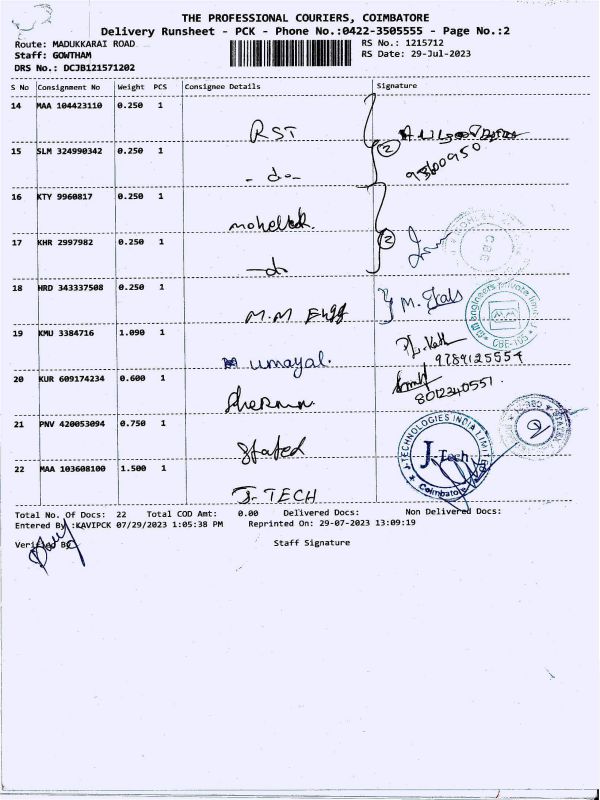 THE PROFESSIONAL COURIERS, COIMBATORE
Delivery Runsheet - PCK - Phone No.:0422-3505555 - Page No.:2
Route: MADUKKARAI ROAD
RS No.: 1215712
Staff: GOWTHAM
RS Date: 29-Jul-2023
DRS No.: DCJB121571202
S No Consignment No Weight PCS Consignee Details Signature
14 MAA 104423110 0.250 1
RST
15 SLM 324990342 0.250 1
2
- do -
16 KTY 9960817 0.250 1
17 KHR 2997982 0.250 1
2
CBE
18 HRD 343337508 0.250 1
M.M Engg
M.
engineers private limited
CBE-105
19 KMU 3384716 1.090 1
umayal.
9789125554
20 KUR 609174234 0.600 1
8012340551
21 PNV 420053094 0.750 1
J-TECHNOLOGIES INDIA LIMITED
J-Tech
Coimbatore
22 MAA 103608100 1.500 1
J-TECH
Total No. Of Docs: 22 Total COD Amt: 0.00 Delivered Docs: Non Delivered Docs:
Entered By :KAVIPCK 07/29/2023 1:05:38 PM Reprinted On: 29-07-2023 13:09:19
Verified By Staff Signature